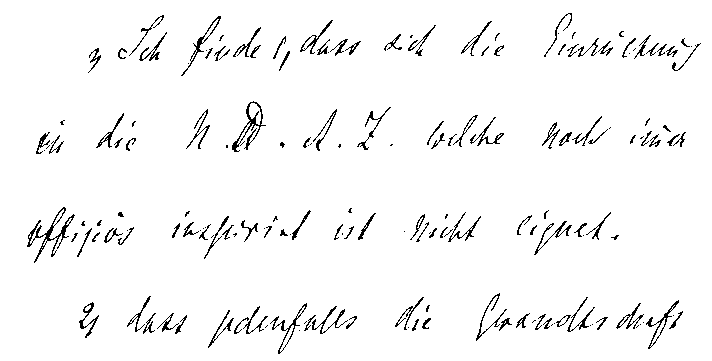 1, Ich finde 1, dass sich die Einrückung
in die N. D. A. Z. welche noch imer
offiziös inspirirt ist nicht eignet.
2, dass jedenfalls die Gesandtschaft